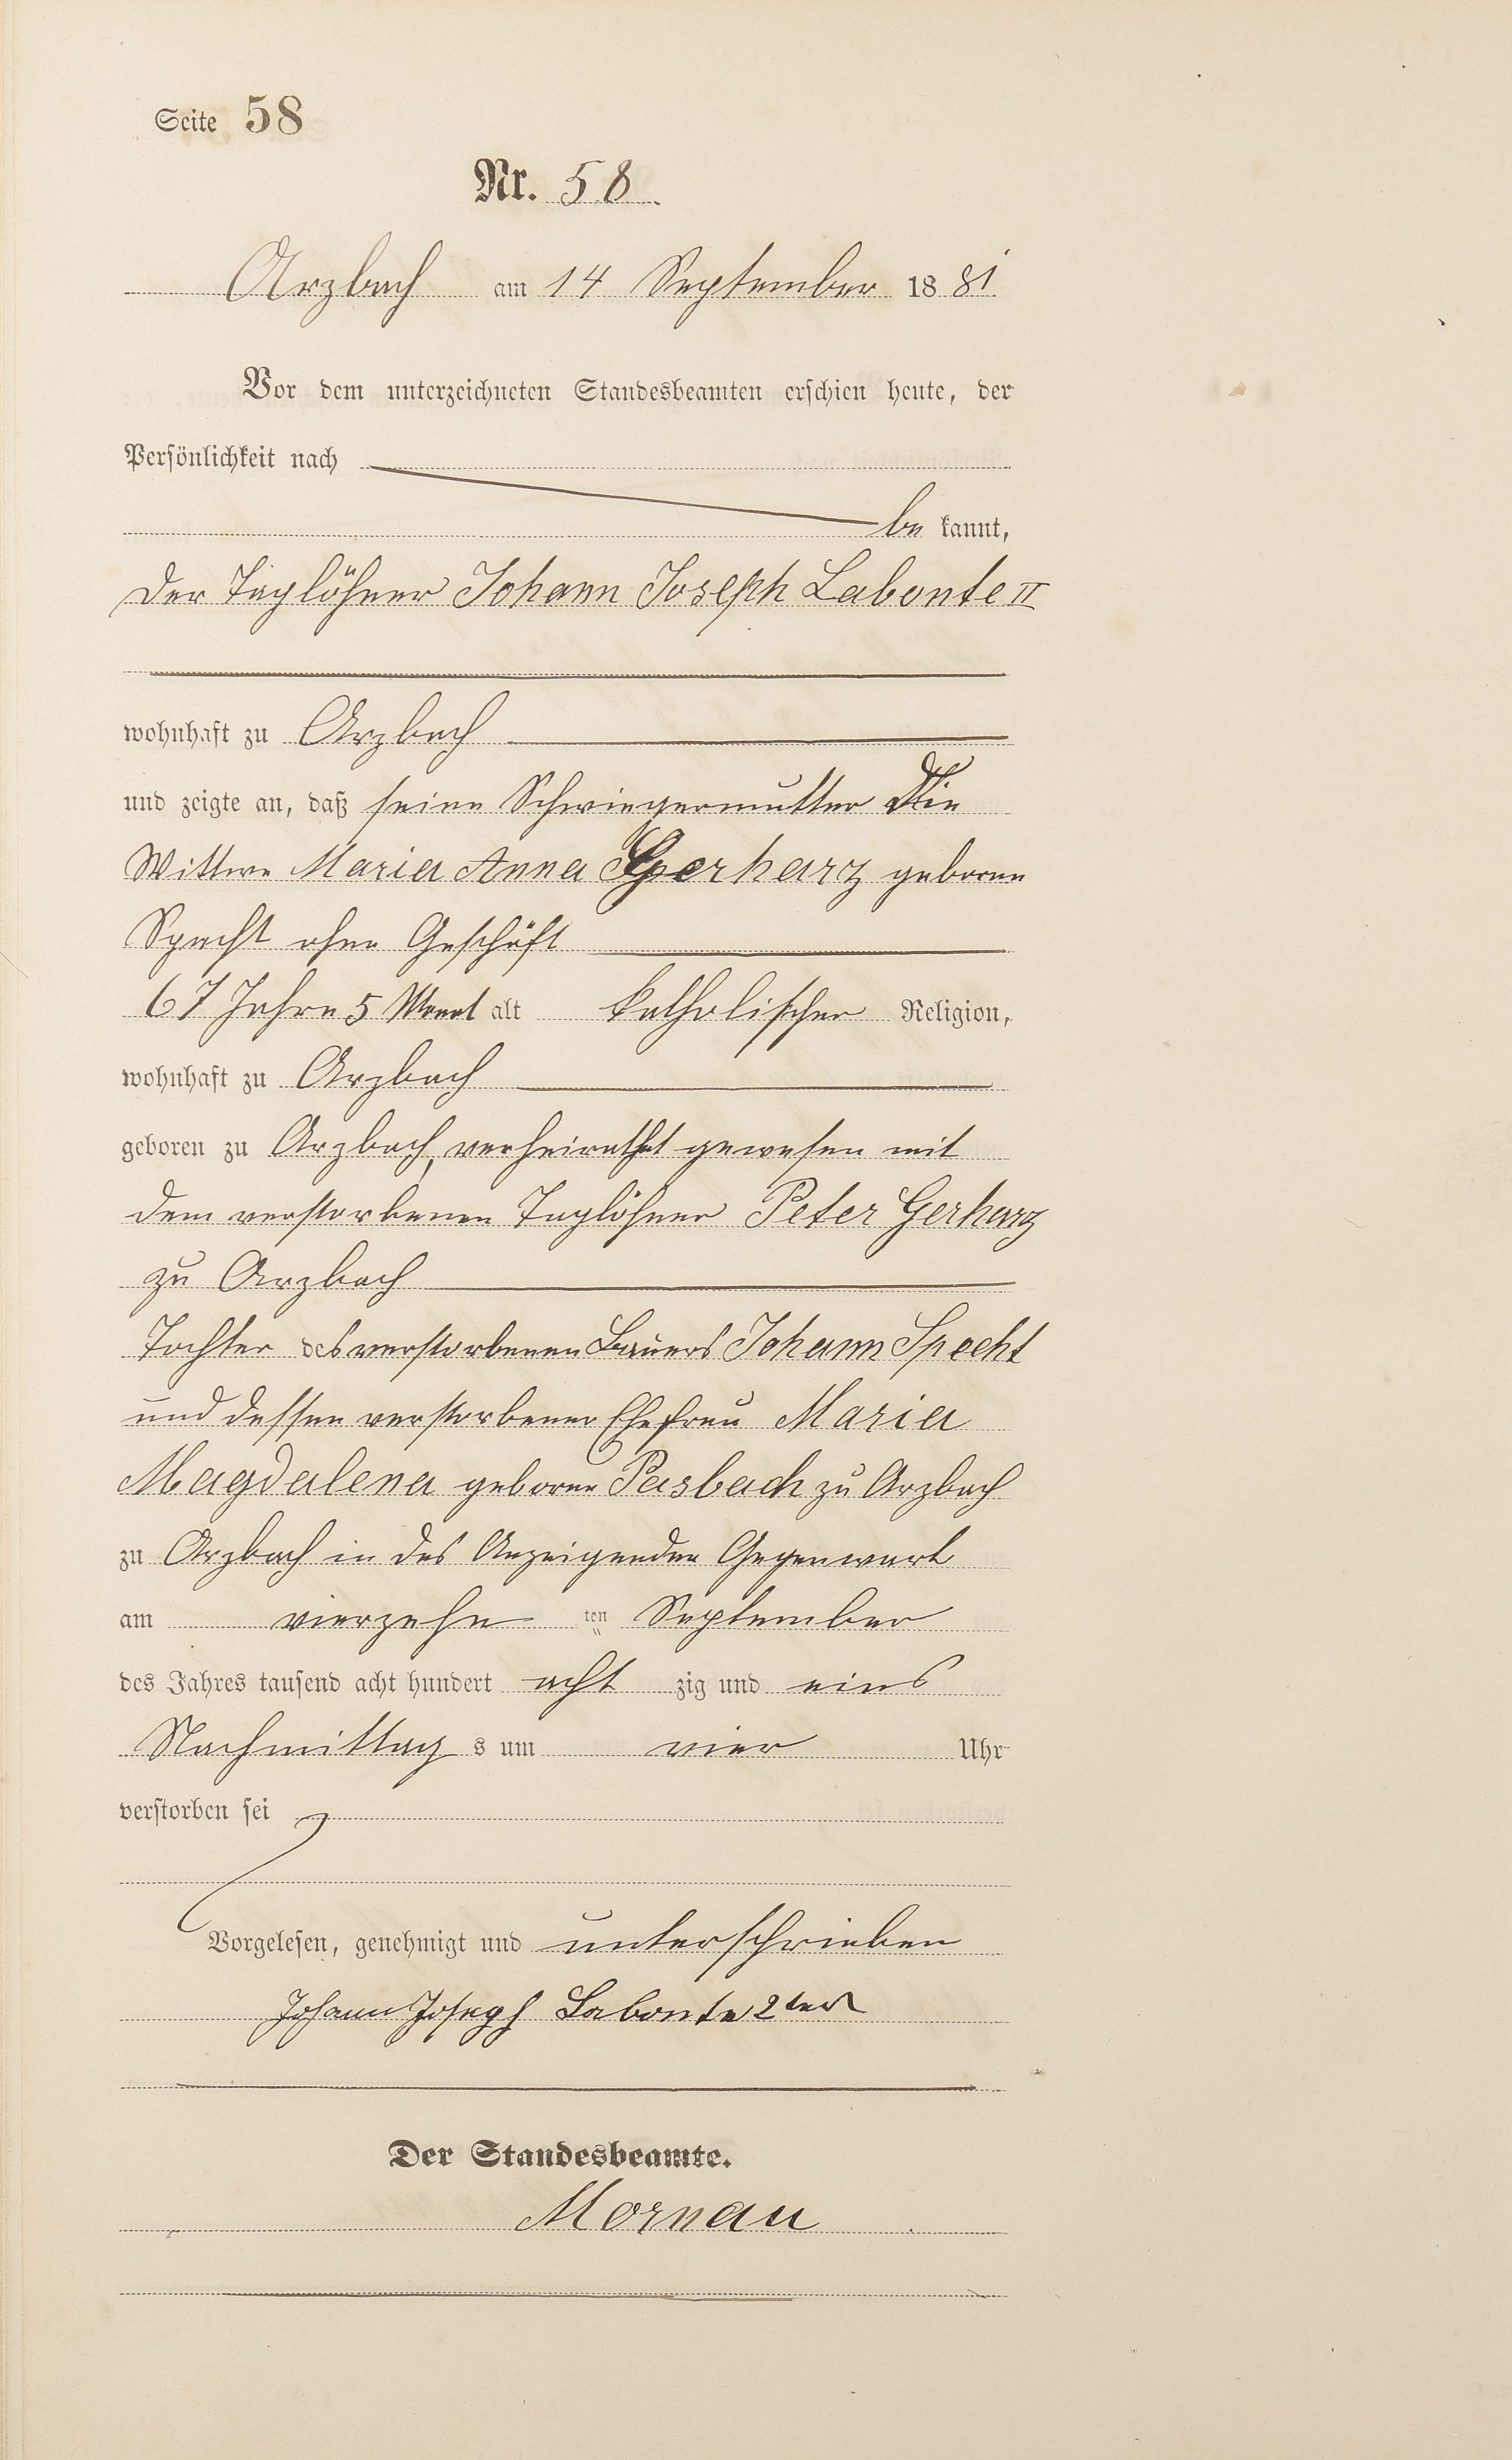 Seite 58
Nr. 58.
Arzbach am 14 September 1881
Vor dem unterzeichneten Standesbeamten erschien heute, der
Persönlichkeit nach
be kannt,
der Taglöhner Johann Joseph Labonte II
wohnhaft zu Arzbach
und zeigte an, daß seine Schwiegermutter Die
Wittwe Maria Anna Gerharz geborene
Specht ohne Geschäft
67 Jahre 5 Monat alt katholischer Religion,
wohnhaft zu Arzbach
geboren zu Arzbach, verheirathet gewesen mit
dem verstorbenen Taglöhner Peter Gerharz
zu Arzbach
Tochter des verstorbenen Bauers Johann Specht
und dessen verstorbener Ehefrau Maria
Magdalena geborne Pasbach zu Arzbach
zu Arzbach in des Anzeigenden Gegenwart
am vierzehn ten September
des Jahres tausend acht hundert acht zig und eins
Nachmittag s um vier Uhr
verstorben sei
Vorgelesen, genehmigt und unterschrieben
Johann Joseph Labonte 2ter
Der Standesbeamte.
Mornau